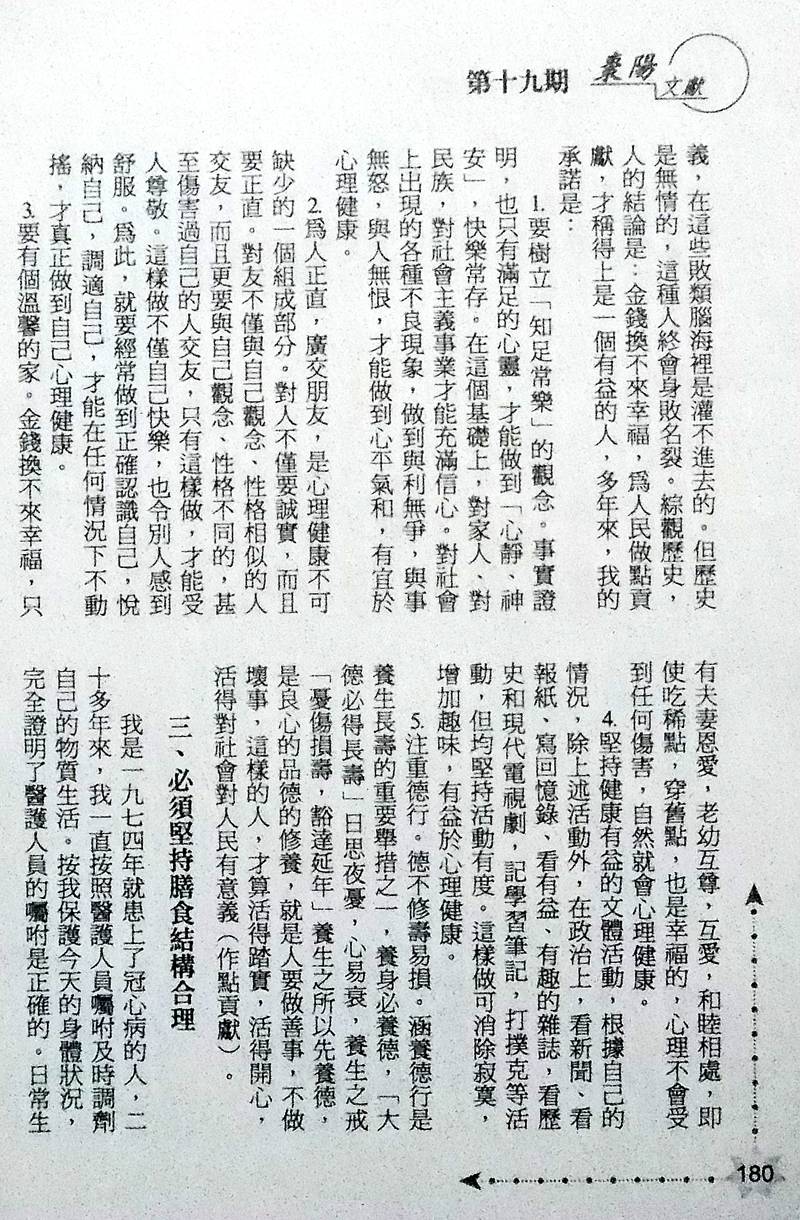 第十九期
棗陽
文獻
義，在這些敗類腦海裡是灌不進去的。但歷史
是無情的，這種人終會身敗名裂。綜觀歷史，
人的結論是：金錢換不來幸福，爲人民做點貢
獻，才稱得上是一個有益的人，多年來，我的
承諾是：
1.要樹立「知足常樂」的觀念。事實證
明，也只有滿足的心靈，才能做到「心靜、神
安」，快樂常存。在這個基礎上，對家人、對
民族，對社會主義事業才能充滿信心。對社會
上出現的各種不良現象，做到與利無爭，與事
無怒，與人無恨，才能做到心平氣和，有宜於
心理健康。
2.爲人正直，廣交朋友，是心理健康不可
缺少的一個組成部分。對人不僅要誠實，而且
要正直。對友不僅與自己觀念、性格相似的人
交友，而且更要與自己觀念、性格不同的，甚
至傷害過自己的人交友，只有這樣做，才能受
人尊敬。這樣做不僅自己快樂，也令別人感到
舒服。爲此，就要經常做到正確認識自己，悅
納自己，調適自己，才能在任何情況下不動
搖，才真正做到自己心理健康。
3.要有個溫馨的家。金錢換不來幸福，只
有夫妻恩愛，老幼互尊，互愛，和睦相處，即
使吃稀點，穿舊點，也是幸福的，心理不會受
到任何傷害，自然就會心理健康。
4.堅持健康有益的文體活動，根據自己的
情況，除上述活動外，在政治上，看新聞、看
報紙、寫回憶錄、看有益、有趣的雜誌，看歷
史和現代電視劇，記學習筆記，打撲克等活
動，但均堅持活動有度。這樣做可消除寂寞，
增加趣味，有益於心理健康。
5.注重德行。德不修壽易損。涵養德行是
養生長壽的重要舉措之一，養身必養德，「大
德必得長壽」日思夜憂，心易衰，養生之戒
「憂傷損壽，豁達延年」養生之所以先養德，
是良心的品德的修養，就是人要做善事，不做
壞事，這樣的人，才算活得踏實，活得開心，
活得對社會對人民有意義（作點貢獻）。
三、必須堅持膳食結構合理
我是一九七四年就患上了冠心病的人，二
十多年來，我一直按照醫護人員囑咐及時調劑
自己的物質生活。按我保護今天的身體狀況，
完全證明了醫護人員的囑咐是正確的。日常生
180